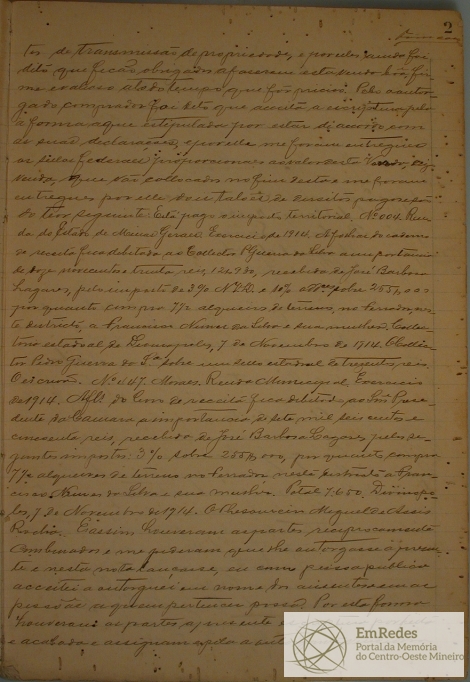 2
tos de transmissão de propriedades, e por elles me foi
dito que ficão obrigados a fazerem esta venda boa, fir
me e valiosa a todo tempo que for preciso. Pelo outor
gado comprador foi dito que aceita a escriptura pela
a forma aqui estipulada por estar de acordo com
as suas declarações, e por elle me foram entregues
as sellas federaes proporcionaes ao valor desta
venda, que vão collocados no fim desta e me foram
entregues por elle dous talões de direitos pagos
do teor seguinte: Está pago o imposto territorial. Nº 004. Ren
da do Estado de Minas Geraes. Exercicio de 1914. A folhas do caderno
de receita fica debitado ao Collector P. Guerra da Silva a importancia
de doze novecentos e trinta reis, 12.930, recebido de José Barbosa
Lagares, pelo imposto de 3% e 10% sobre 255$000
por quanto compra 77 alqueires de terreno, no Cerrado, nes
te districto, a Francisco Nunes da Silva e sua mulher. Collec
toria estadoal de Divinopolis, 7 de Novembro de 1914. O Collec
tor Pedro Guerra da Sª sobre um sello estadoal de trezentos reis.
O escrivão. Nº 447. Moraes. Renda Municipal. Exercicio
de 1914. A fls do livro de receita fica debitado ao Snr. Presi
dente da Camara a importancia de sete mil seiscentos e
cincoenta reis, recebida de José Barbosa Lagares, pelos se
guintes impostos: 3% sobre 255$000, por quanto compra
77 alqueires de terreno no Cerrado neste districto a Fran
cisco Nunes da Silva e sua mulher. Total 7.650. Divinopo
lis, 7 de Novembro de 1914. O Thesoureiro Miguel de Assis
E assim houveram as partes, reciprocamente
combinados e me pediram que lhe outorgasse a presen
te e nesta nota lançasse, eu como pessoa publica
acceitei e outorguei em nome dos ausentes e mais
pessoas a quem pertencer possa. Por esta forma
houveram as partes, a presente
e acabado e assignam
EmRedes
Portal da Memória
do Centro-Oeste Mineiro